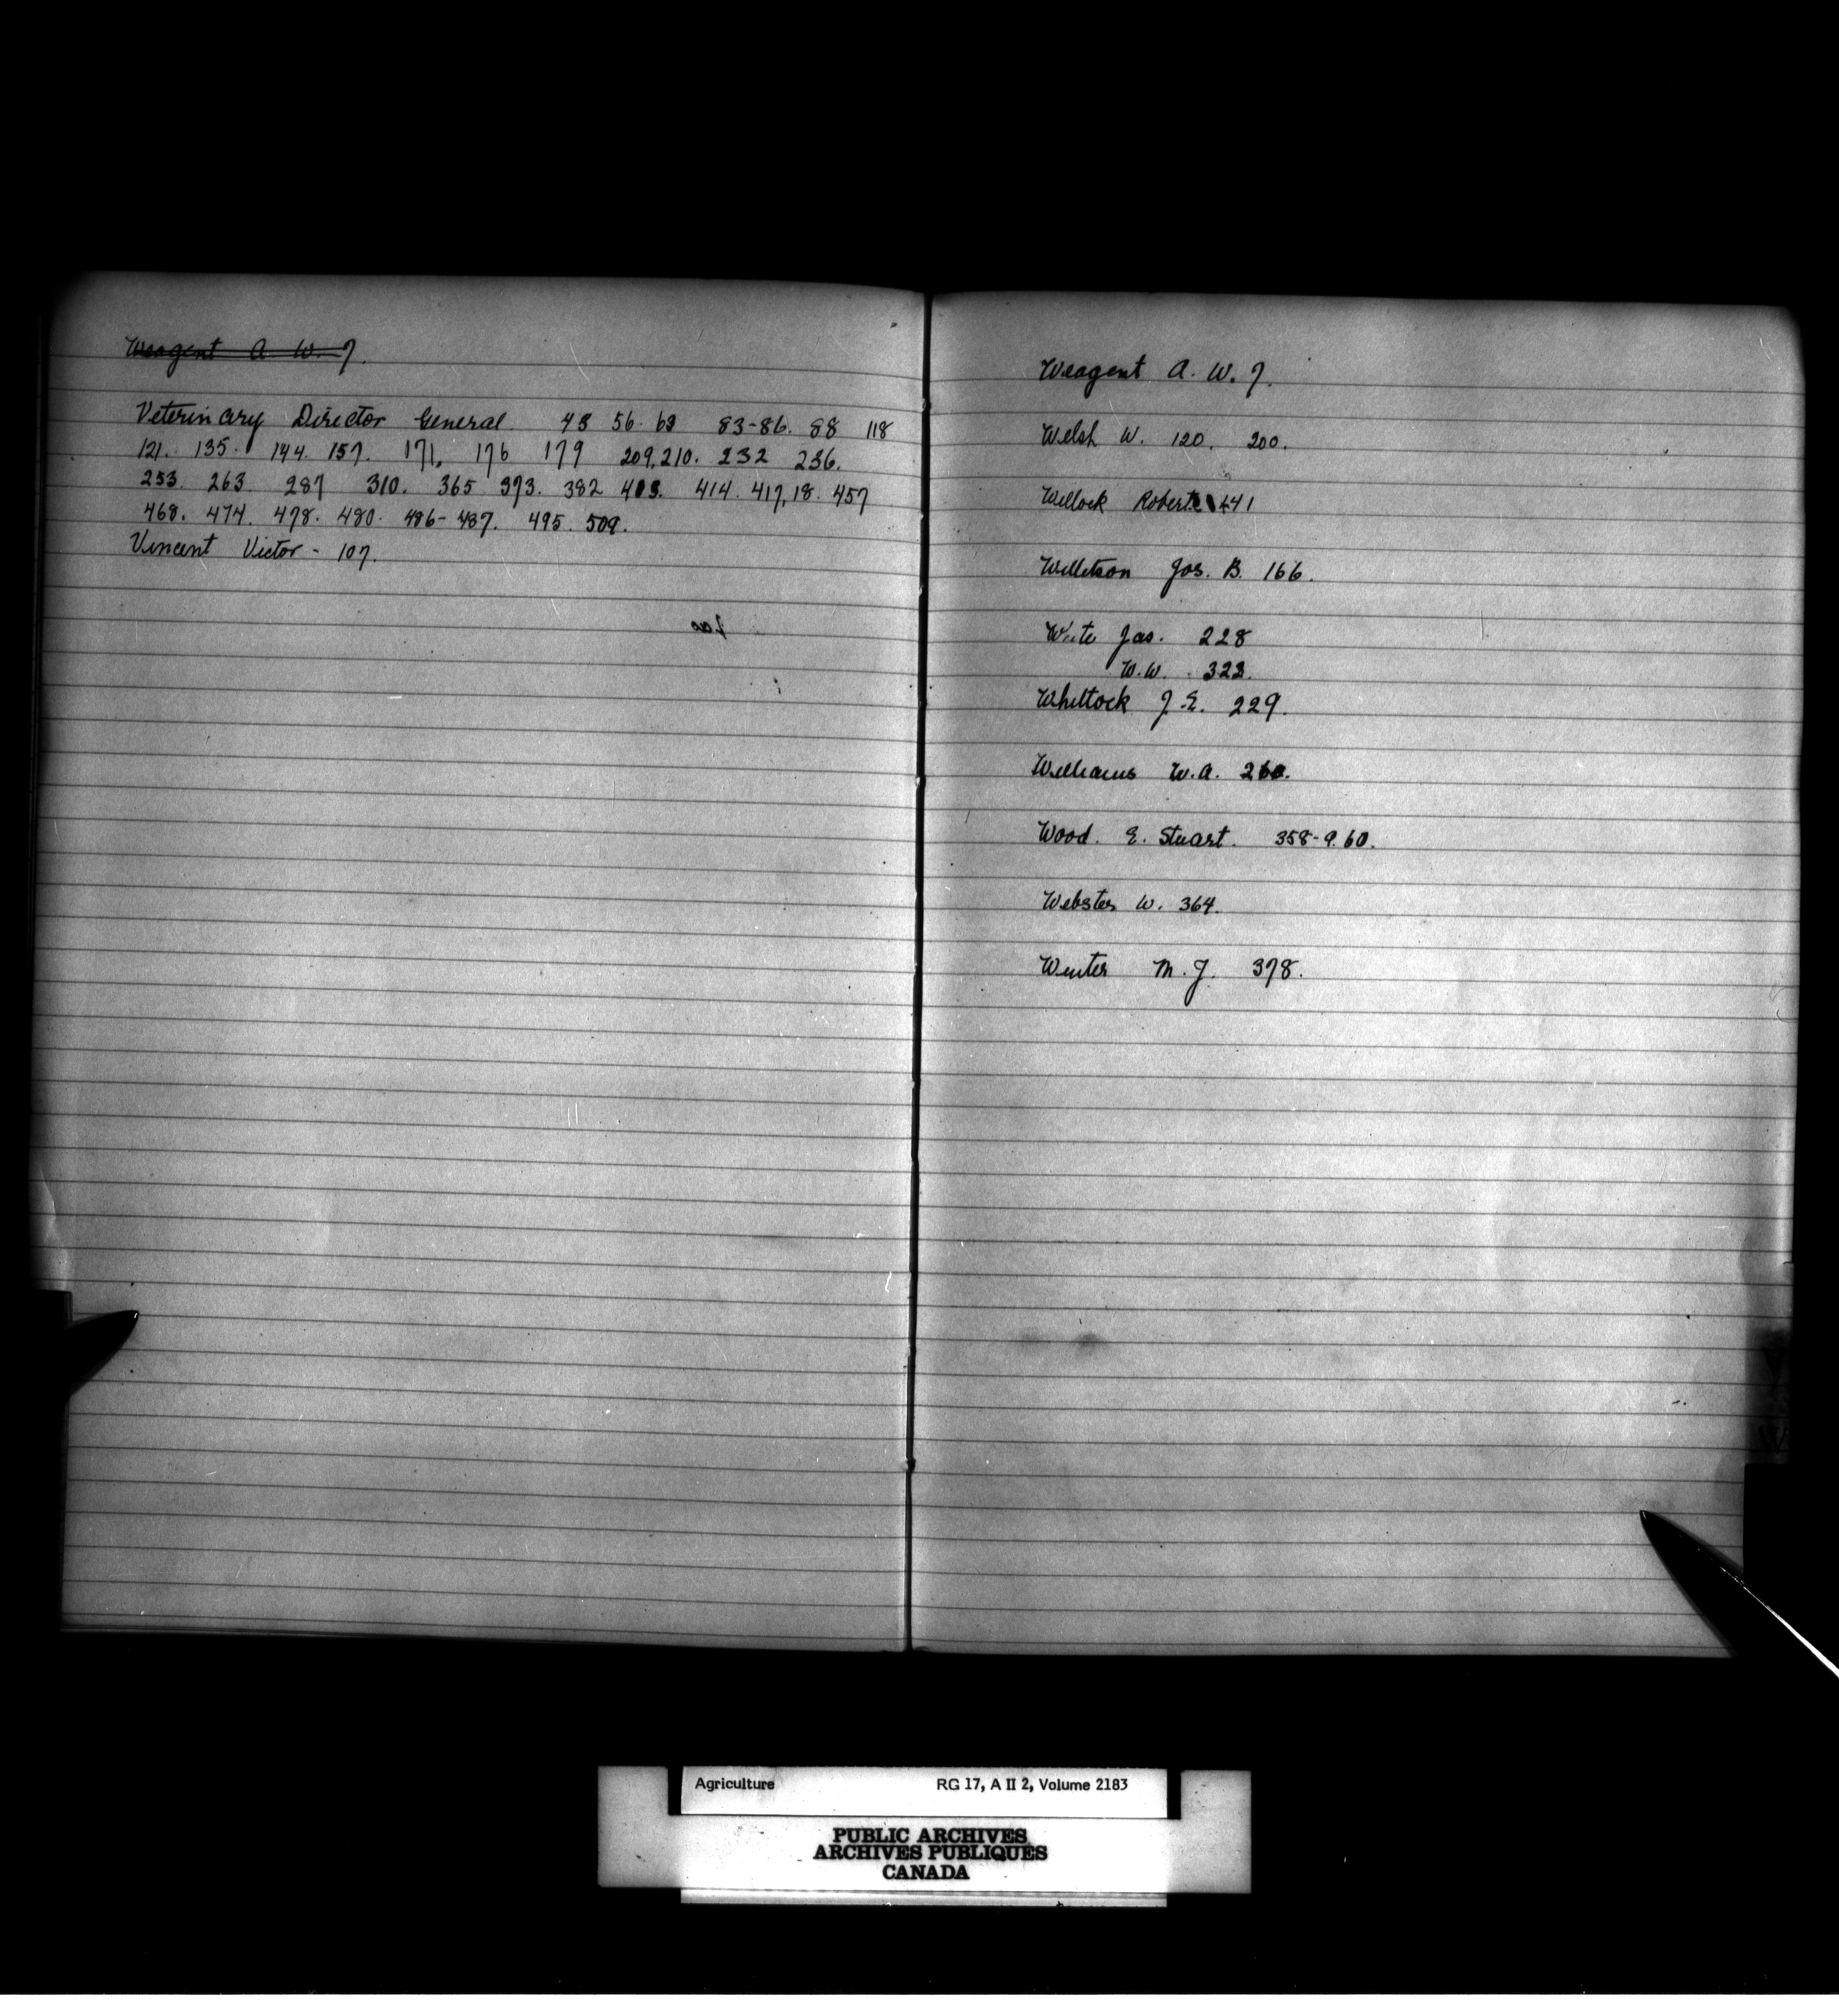 Weagent A. W. 7.
Veterinary Director General. 48 56. 63 83-86. 88 118
121. 135. 144. 157. 171. 176 179 209,210. 232 236.
253. 263. 287 310. 365 373. 382 403. 414. 417,18. 457
468. 474. 478. 480. 486-487. 495. 509.
Vincent Victor - 107.
Weagent A. W. 7.
Welsh W. 120. 200.
Wellock Robert 141
Willitson Jos. B. 166.
Waite Jas. 228
W.W. 323.
Whittock J.E. 229.
Williams W.A. 260.
Wood. E. Stuart. 358-9.60.
Webster W. 364.
Winter M. J. 378.
V
W
Agriculture RG 17, A II 2, Volume 2183
PUBLIC ARCHIVES
ARCHIVES PUBLIQUES
CANADA